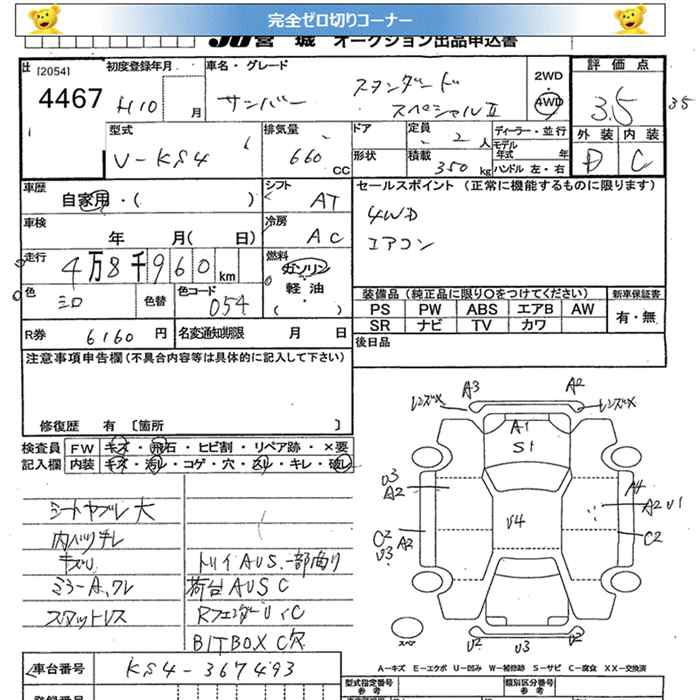 完全ゼロ切りコーナー
JU宮城 オークション出品申込書
[2054]
4467
初度登録年月
H10 月
車名・グレード
サンバー
スタンダード
スペシャルⅡ
2WD
4WD
評価点
3.5
35
外装 内装
D C
型式
V-KS4
排気量
660 CC
ドア
形状
定員
2人
積載
350 kg
ディーラー・並行
モデル年式 年
ハンドル 左・右
車歴
自家用・( )
シフト
AT
セールスポイント(正常に機能するものに限ります)
4WD
エアコン
車検
年 月( 日)
冷房
AC
走行
4万8千960 km
燃料
ガソリン
・
軽油
( )
色
シロ
色替
色コード
054
装備品(純正品に限り○をつけてください)
PS PW ABS エアB AW
SR ナビ TV カワ
新車保証書
有・無
R券
6160 円
名変通知期限 月 日
後日品
注意事項申告欄(不具合内容等は具体的に記入して下さい)
修復歴 有 [箇所 ]
検査員記入欄
FW キズ・飛石・ヒビ割・リペア跡・×要
内装 キズ・汚レ・コゲ・穴・スレ・キレ・破レ
シートヤブレ大
キズU
ミラーA、ワレ
スタットレス
トリイAUS、一部曲り
荷台AUSC
RフェンダーUSC
BITBOX C穴
レンズ× A3 A2 レンズ×
A1
S1
U3
A2
A4
A2 U1
U4
C2 A2
U3
C2
スペア
U2 U3 U2
A-キズ E-エクボ U-凹み W-補修跡 S-サビ C-腐食 XX-交換済
車台番号
KS4-367493
型式指定番号
参考
類別区分番号
参考